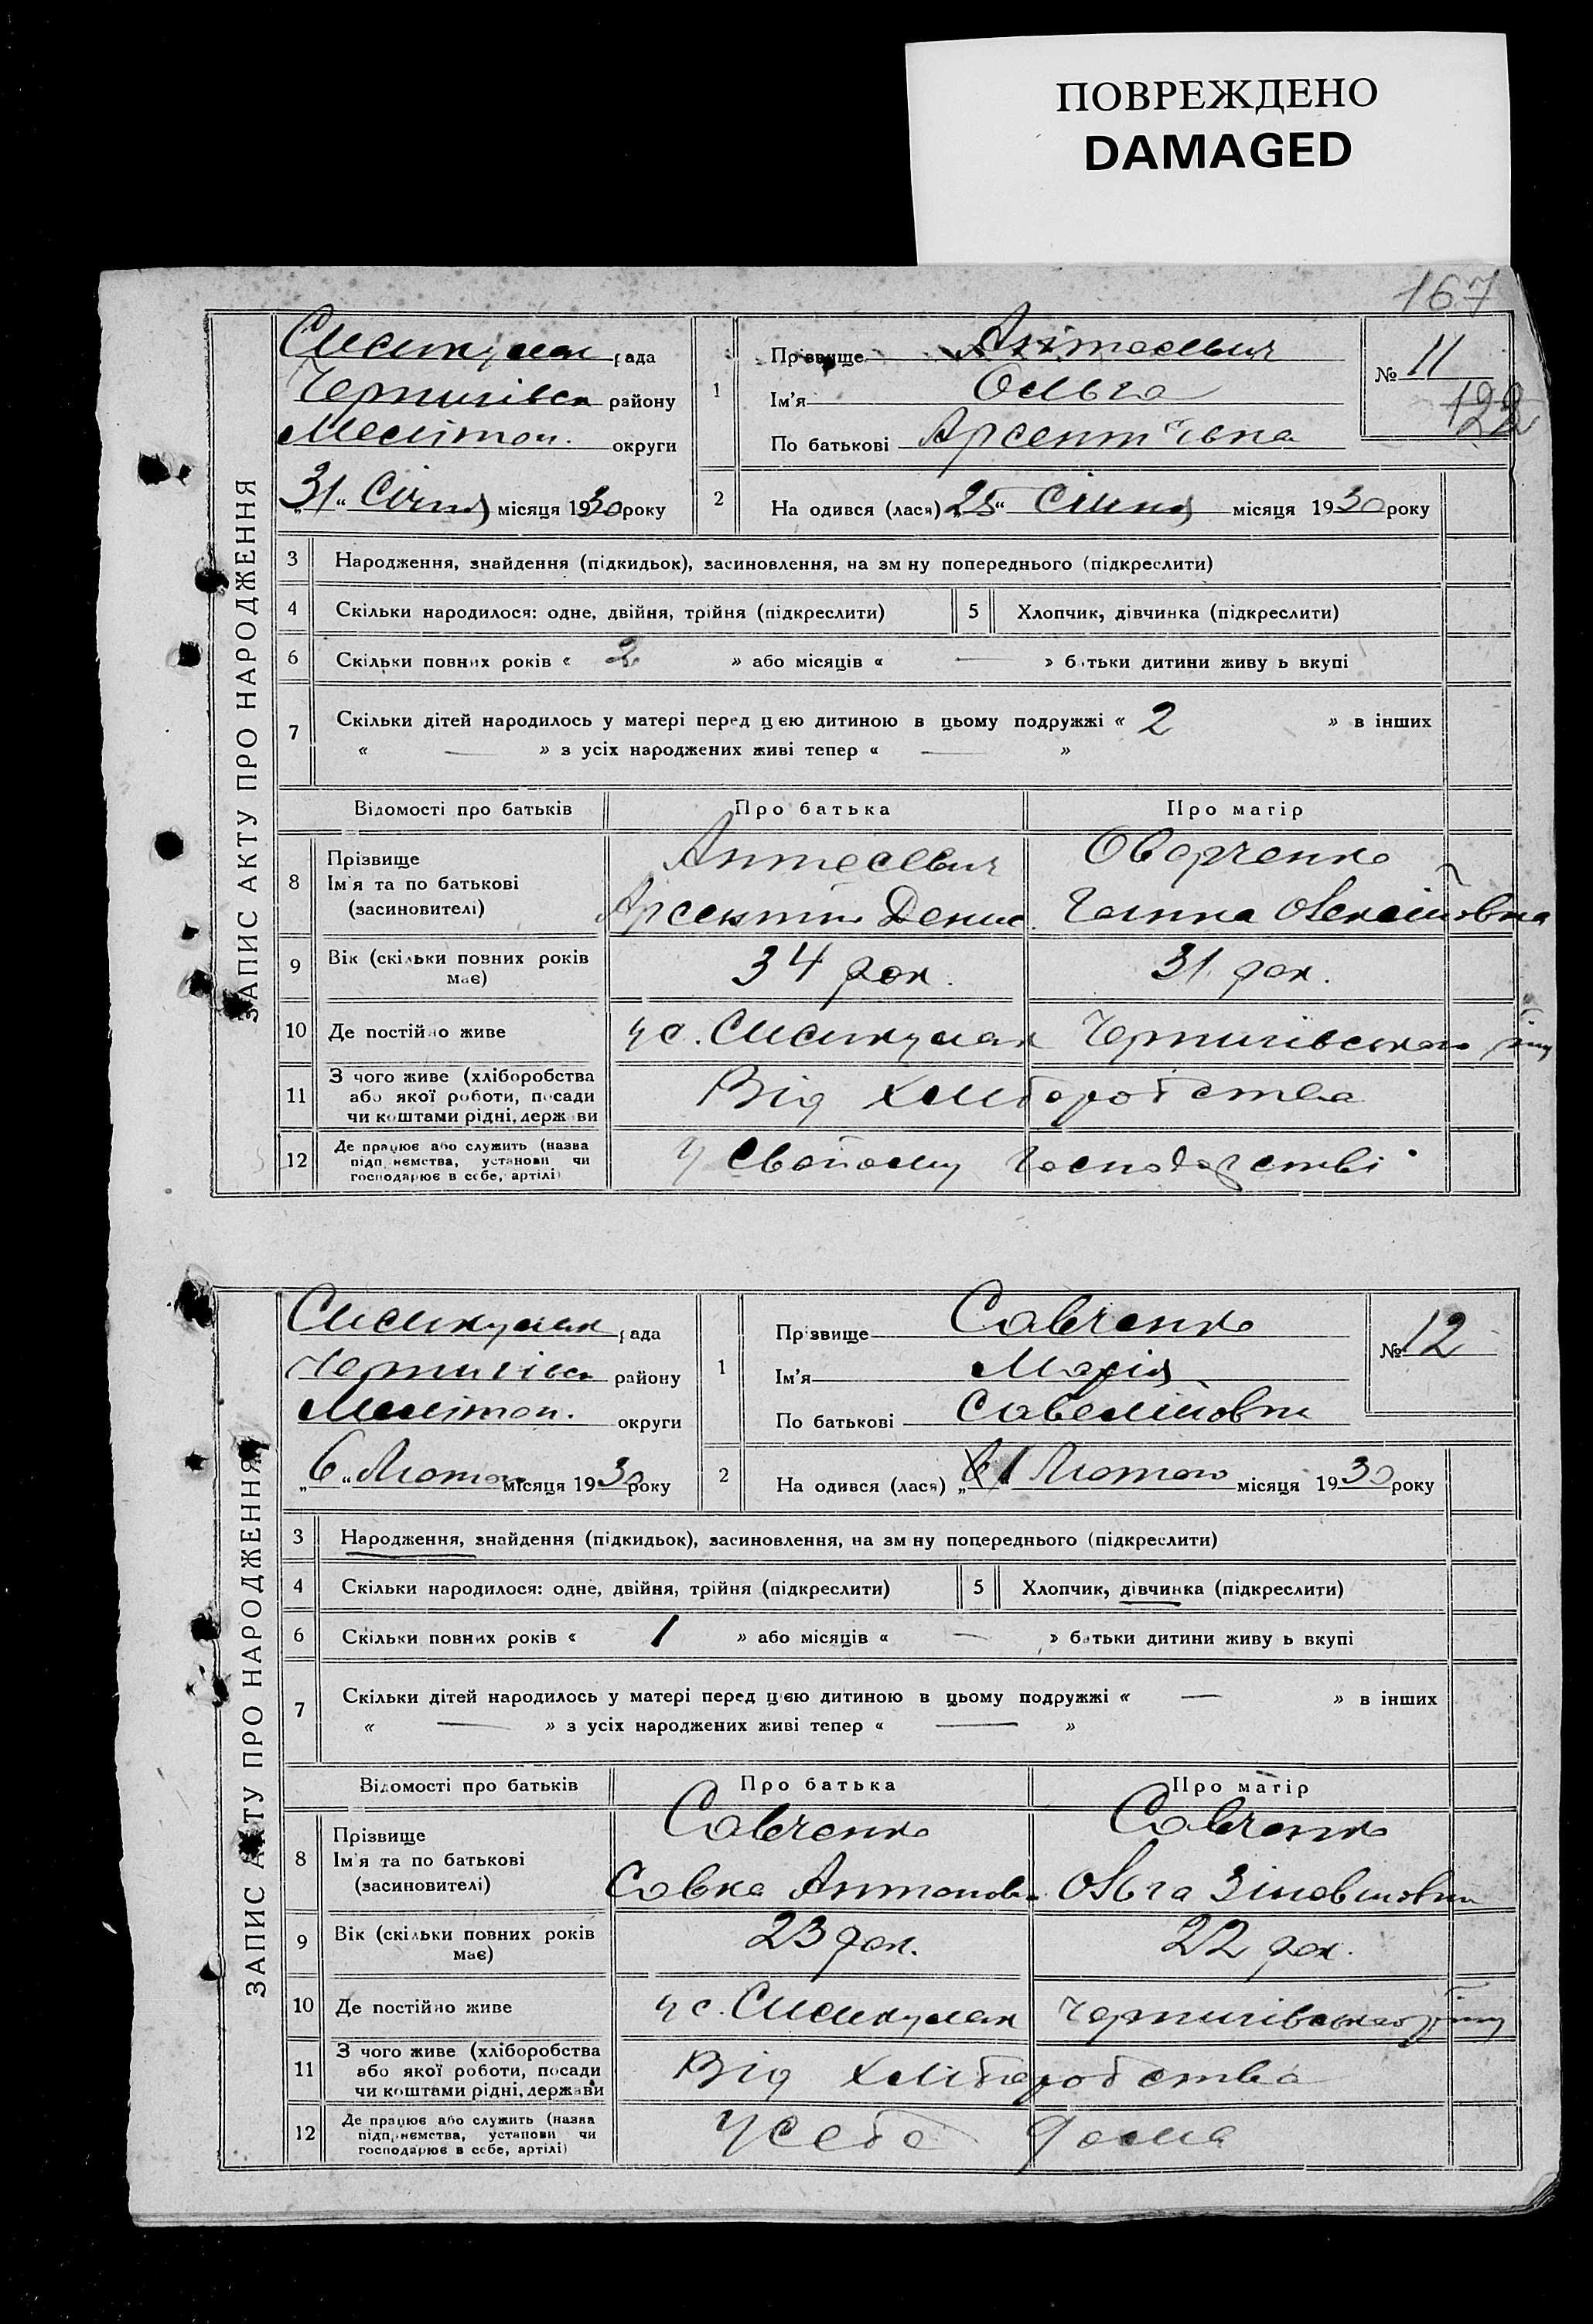 ПОВРЕЖДЕНО
DAMAGED
167
ЗАПИС АКТУ ПРО НАРОДЖЕННЯ
Сисикулак рада
Чернигівск району
Мелітоп. округи
„31“ Січня місяця 1930 року
1
Прізвище Антосевич
Ім'я Ольга
По батькові Арсентіївна
№ 11
122
2 На одився (лася) „25“ Січня місяця 1930 року
3 Народження, знайдення (підкидьок), засиновлення, на зм ну попереднього (підкреслити)
4 Скільки народилося: одне, двійня, трійня (підкреслити) 5 Хлопчик, дівчинка (підкреслити)
6 Скільки повних років « 2 » або місяців « — » батьки дитини живу ь вкупі
7 Скільки дітей народилось у матері перед цією дитиною в цьому подружжі « 2 » в інших
« — » з усіх народжених живі тепер « — »
Відомості про батьків Про батька Про матір
8 Прізвище
Ім'я та по батькові
(засиновителі)
Антосевич Оворченко
Арсентій Денис. Ганна Олексіївна
9 Вік (скільки повних років має) 34 рок. 31 рок.
10 Де постійно живе у с. Сисикулак Чернигівського р-ну
11 З чого живе (хліборобства
або якої роботи, посади
чи коштами рідні, держави
Від хліборобства
12 Де працює або служить (назва
підприємства, установи чи
господарює в себе, артілі)
У своїому господарстві
ЗАПИС АКТУ ПРО НАРОДЖЕННЯ
Сисикулак рада
Чернигівск району
Мелітоп. округи
„6“ Лютого місяця 1930 року
1
Прізвище Савченко
Ім'я Марія
По батькові Савеліївна
№ 12
2 На одився (лася) „1 Лютого місяця 1930 року
3 Народження, знайдення (підкидьок), засиновлення, на зм ну попереднього (підкреслити)
4 Скільки народилося: одне, двійня, трійня (підкреслити) 5 Хлопчик, дівчинка (підкреслити)
6 Скільки повних років « 1 » або місяців « — » батьки дитини живу ь вкупі
7 Скільки дітей народилось у матері перед цією дитиною в цьому подружжі « — » в інших
« — » з усіх народжених живі тепер « — »
Відомості про батьків Про батька Про матір
8 Прізвище
Ім'я та по батькові
(засиновителі)
Савченко Савченко
Савка Антонов. Ольга Зіновіивна
9 Вік (скільки повних років має) 23 рок. 22 рок.
10 Де постійно живе у с. Сисикулак Чернигівського р-ну
11 З чого живе (хліборобства
або якої роботи, посади
чи коштами рідні, держави
Від хліборобства
12 Де працює або служить (назва
підприємства, установи чи
господарює в себе, артілі)
У себе дома